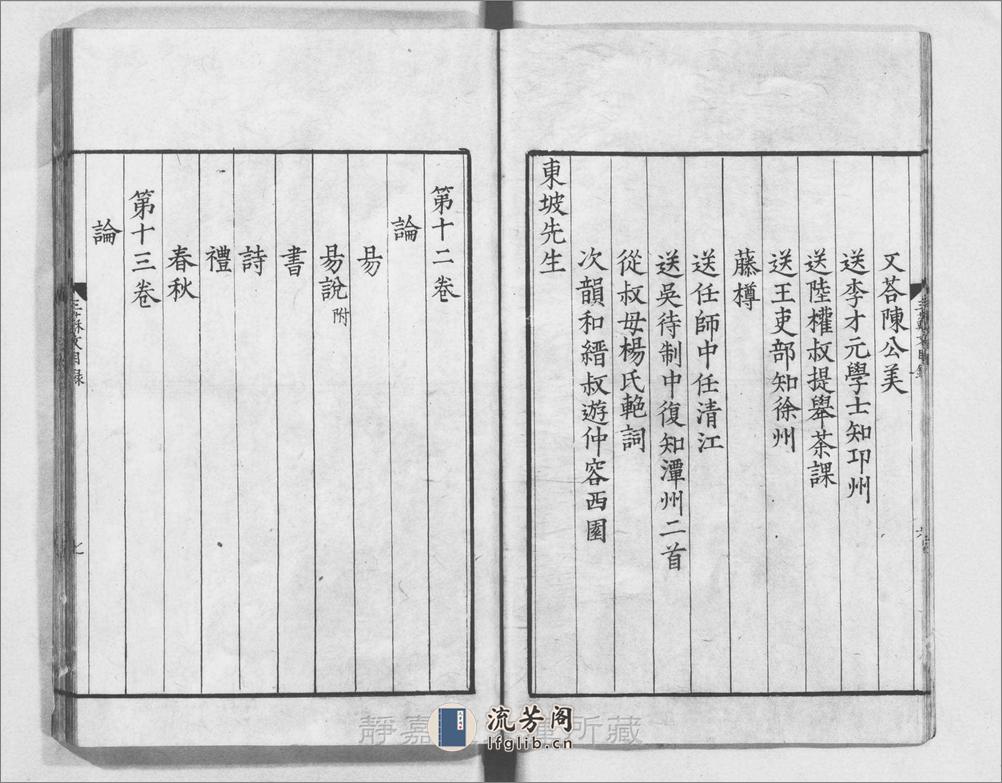 又荅陳公美
送李才元學士知邛州
送陸權叔提舉茶課
送王吏部知徐州
藤樽
送任師中任清江
送吳待制中復知潭州二首
從叔母楊氏輓詞
次韻和縉叔遊仲容西園
東坡先生
第十二卷
論
易
易說附
書
詩
禮
春秋
第十三卷
論
三蘇文目錄
七
流芳阁
lfglib.cn